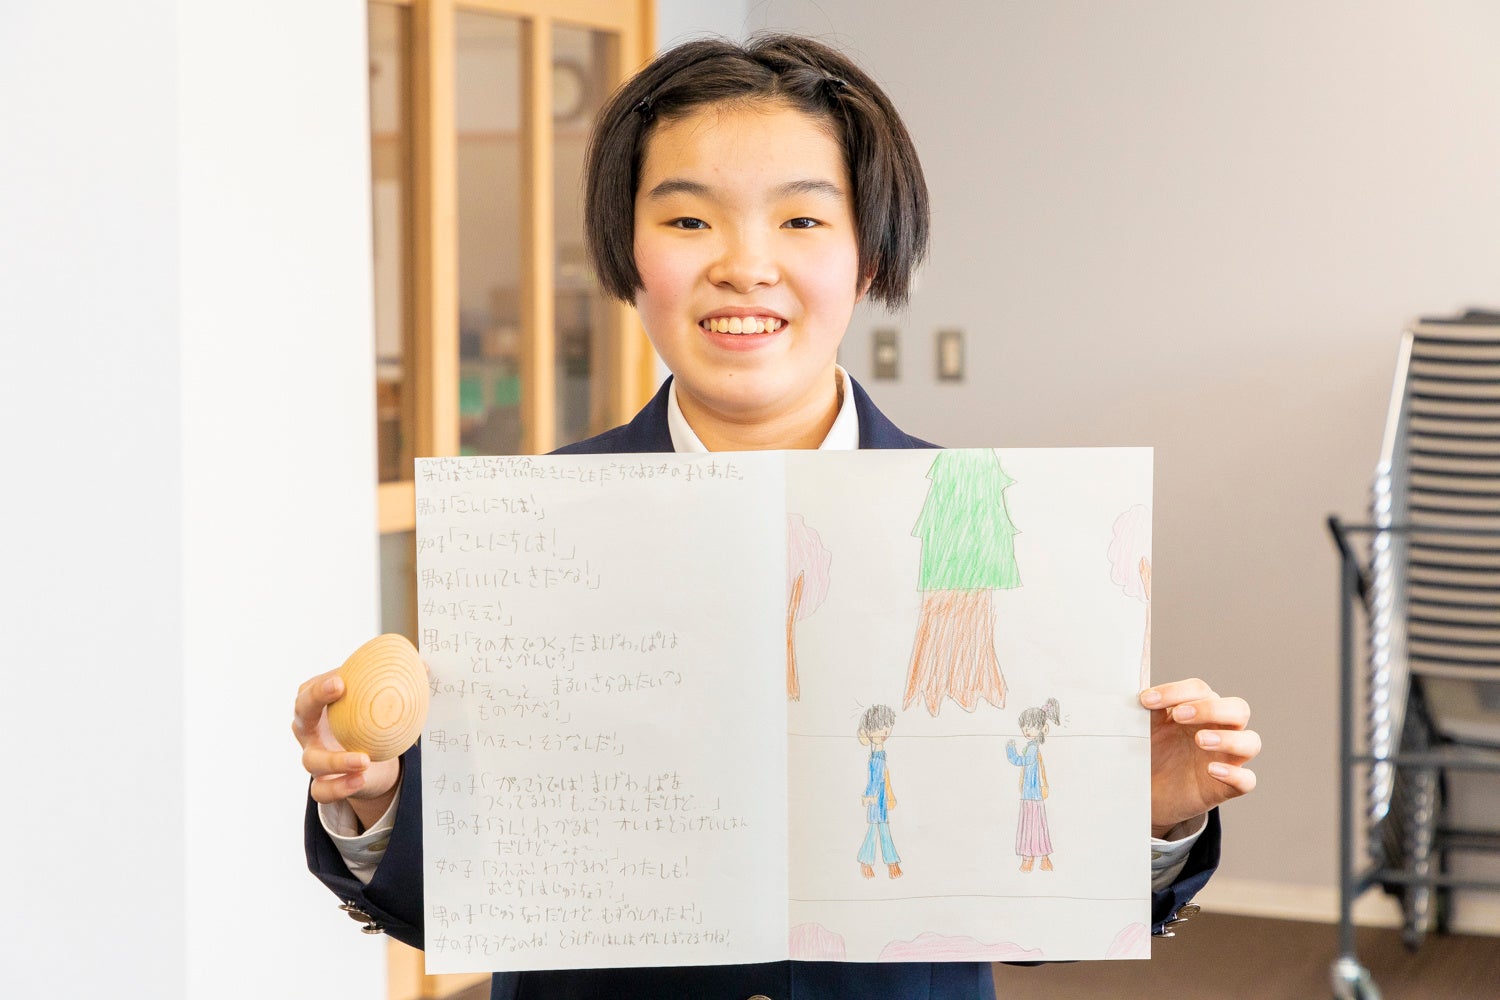 オレはさんぽしていたときしこともだちである女の子とすった。
男の子「こんにちは!」
女の子「こんにちは!」
男の子「いいてんきだな!」
女の子「ええ!」
男の子「その木でつくったまげわっぱは
どしなかんじ?」
女の子「え〜っと… まるいさらみたいな
ものかな?」
男の子「へえ〜!そうなんだ!」
女の子「がっこうでは!まげわっぱを
つくってるわ!もっこうはんだけど…」
男の子「うん!わかるよ! オレはとうげいはん
だけどなぁ〜…」
女の子「うふふ!わかるわ!わたしも!
おさらはじゅうちょう?」
男の子「じゅうちょうだけど…むずかしかったよ!」
女の子「そうなのね! とうげいはんはがんばってるわね!